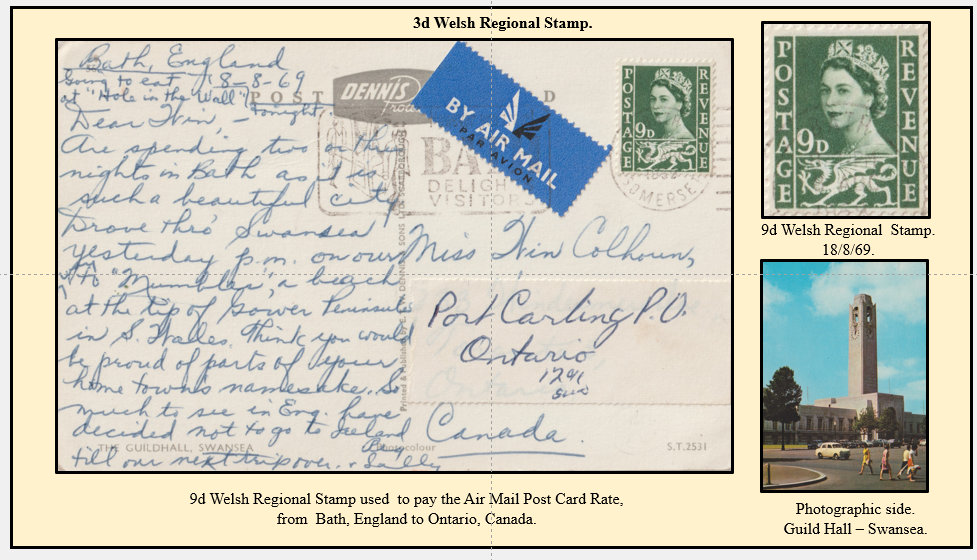 3d Welsh Regional Stamp.
Bath, England
Going to eat 18-8-69
at "Hole in the Wall"
tonight
Dear Win, -
Are spending two or three
nights in Bath as it is
such a beautiful city.
Drove thro' Swansea
yesterday p.m. on our
way to "Mumbles", a beach
at the tip of Gower Peninsula
in S. Wales. Think you would
be proud of parts of your
home town's namesake. So
much to see in Eng. have
decided not to go to Ireland
till our next trip over.
Sally
POST D
DENNIS
BY AIR MAIL
PAR AVION
BATH
DELIGHTS
VISITORS
SOMERSET
POSTAGE
REVENUE
9D
Miss Win Colhoun,
Port Carling P.O.
Ontario
Canada.
THE GUILDHALL, SWANSEA
Photocolour
S.T.2531
POSTAGE
REVENUE
9D
9d Welsh Regional Stamp.
18/8/69.
Photographic side.
Guild Hall – Swansea.
9d Welsh Regional Stamp used to pay the Air Mail Post Card Rate,
from Bath, England to Ontario, Canada.